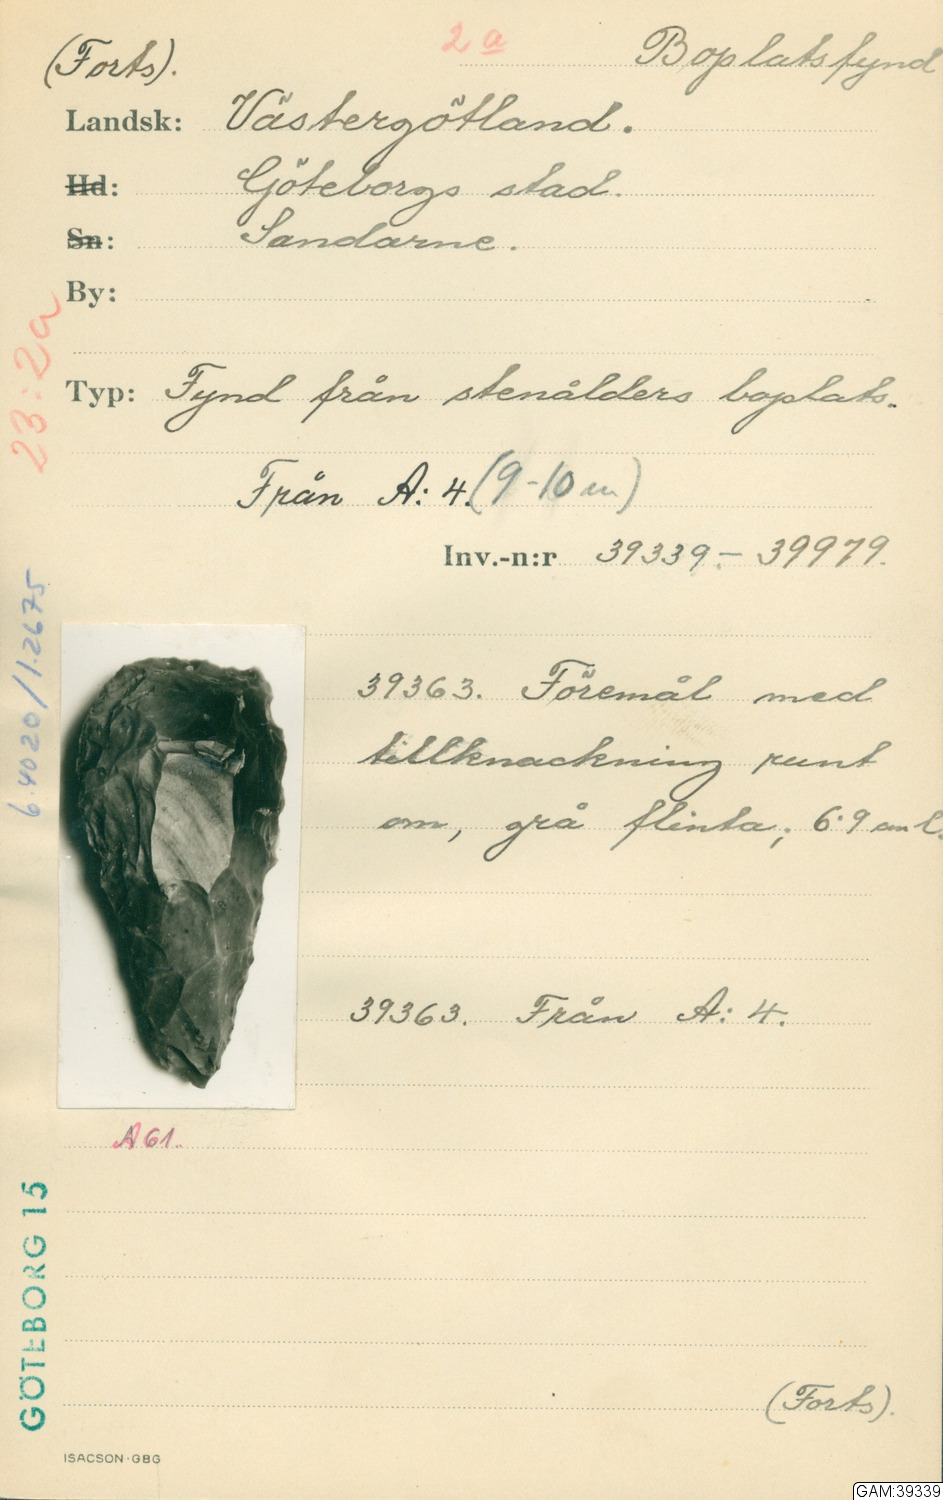 (Forts).
2a
Boplatsfynd
Landsk: Västergötland.
Hd: Göteborgs stad.
Sn: Sandarne.
By:
23:2a
Typ: Fynd från stenålders boplats.
Från A: 4. (9-10 m)
Inv.-n:r 39339.– 39979.
6.4020/1.2675
39363. Föremål med
tillknackning runt
om, grå flinta; 6.9 cm l.
39363. Från A: 4.
A61.
GÖTEBORG 15
(Forts).
ISACSON·GBG
GAM:39339